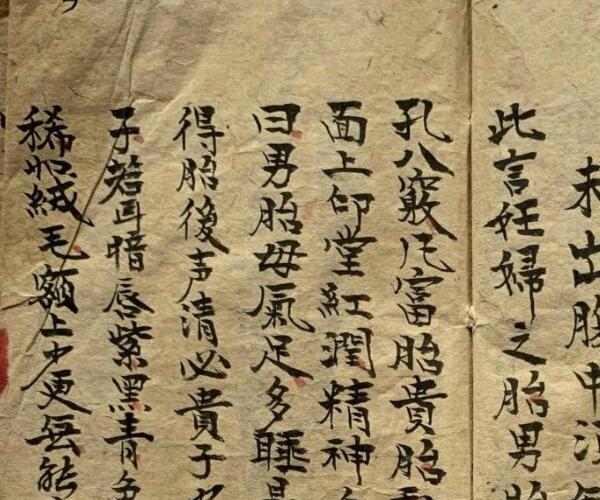 未出腹中須
此言妊婦之胎男胎
孔八竅凡富胎貴胎
面上印堂紅潤精神
曰男胎母氣足多睡是
得胎後声清必貴子
子若耳暗唇紫黑青色
稀如絨毛額上少更無能